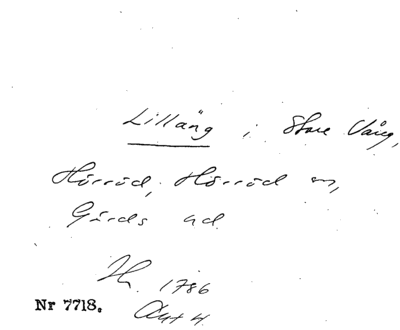 Lilläng i Store Vång,
Hörröd, Hörröd sn,
Gärds hd
1786
Akt 4.
Nr 7718.